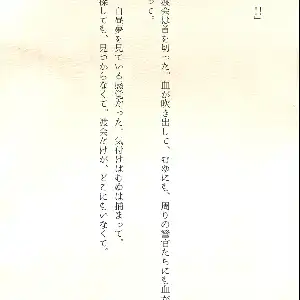 !!」
渡会は首を切った。血が吹き出して、むめにも、周りの警官たちにも血が
って。
白昼夢を見ている感覚だった。気付けばむめは捕まって。
探しても、見つからなくて。渡会だけが、どこにもいなくて。